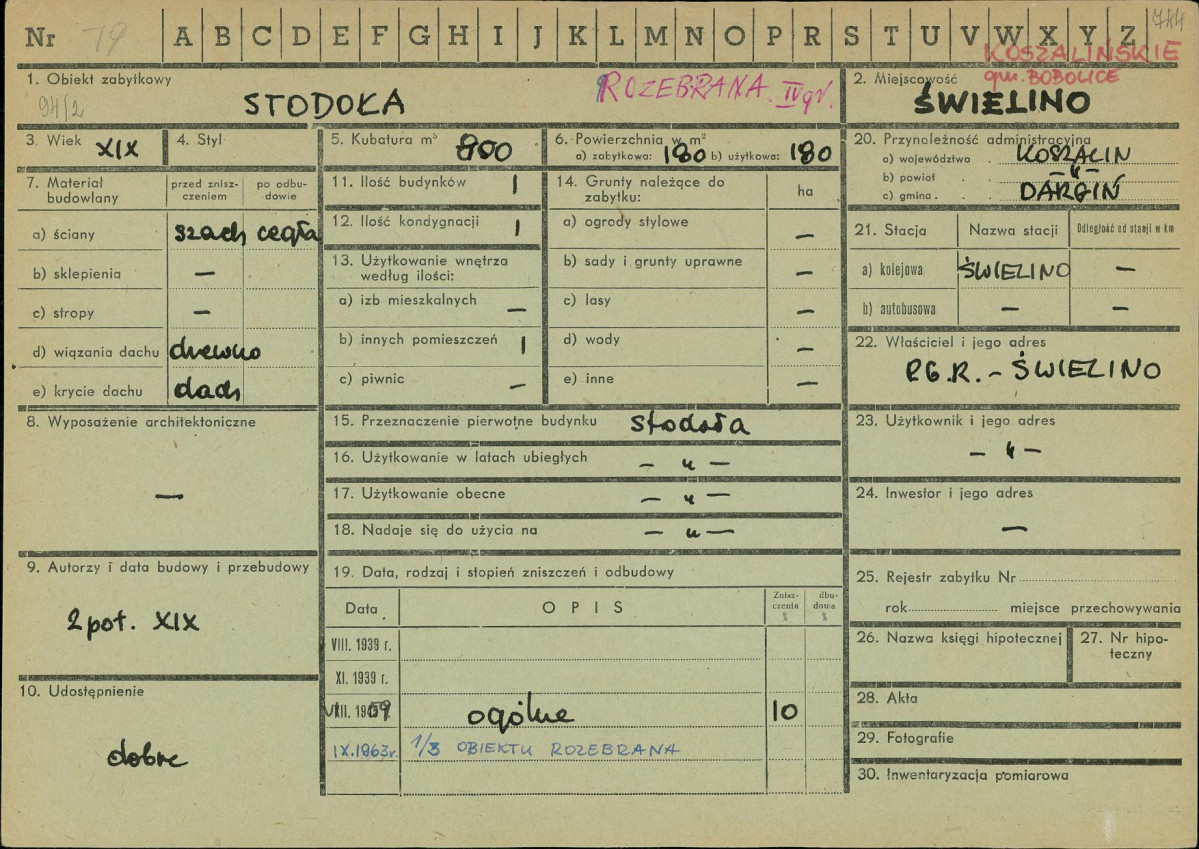 Nr 79 A B C D E F G H I J K L M N O P R S T U V W X Y Z 744
KOSZALIŃSKIE
gm. BOBOLICE
1. Obiekt zabytkowy
94/2
STODOŁA
ROZEBRANA. IV gr.
2. Miejscowość
ŚWIELINO
3. Wiek XIX
4. Styl
5. Kubatura m³ 800
6. Powierzchnia w m²
a) zabytkowa: 180 b) użytkowa: 180
20. Przynależność administracyjna
a) województwo KOSZALIN
b) powiat -„-
c) gmina DARGIŃ
7. Materiał budowlany
przed zniszczeniem
po odbudowie
a) ściany szach cegła
b) sklepienia —
c) stropy —
d) wiązania dachu drewno
e) krycie dachu dach
11. Ilość budynków 1
12. Ilość kondygnacji 1
13. Użytkowanie wnętrza
według ilości:
a) izb mieszkalnych —
b) innych pomieszczeń 1
c) piwnic —
14. Grunty należące do
zabytku:
ha
a) ogrody stylowe —
b) sady i grunty uprawne —
c) lasy —
d) wody —
e) inne —
21. Stacja Nazwa stacji Odległość od stacji w km
a) kolejowa ŚWIELINO —
b) autobusowa — —
22. Właściciel i jego adres
P.G.R. – ŚWIELINO
8. Wyposażenie architektoniczne
—
15. Przeznaczenie pierwotne budynku stodoła
16. Użytkowanie w latach ubiegłych — „ —
17. Użytkowanie obecne — „ —
18. Nadaje się do użycia na — „ —
23. Użytkownik i jego adres
— „ —
24. Inwestor i jego adres
—
9. Autorzy i data budowy i przebudowy
2 poł. XIX
10. Udostępnienie
dobre
19. Data, rodzaj i stopień zniszczeń i odbudowy
Data OPIS Zniszczenia % dbudowa %
VIII. 1939 r.
XI. 1939 r.
ogólne 10
IX.1963r. 1/3 OBIEKTU ROZEBRANA
25. Rejestr zabytku Nr
rok miejsce przechowywania
26. Nazwa księgi hipotecznej
27. Nr hipoteczny
28. Akta
29. Fotografie
30. Inwentaryzacja pomiarowa